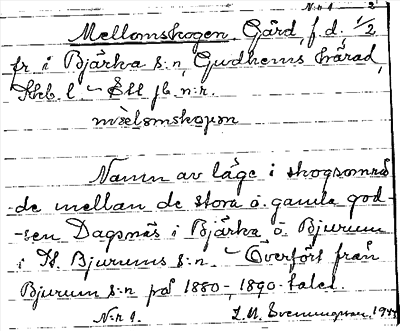 N:o 1 2
Mellomskogen, Gård, f.d. 1/2
fr i Bjärka s:n, Gudhems härad,
Skbl. l ~ Äll jb. n:r.
Namn av läge i skogsområ-
-de mellan de stora o. gamla god-
-sen Dagsnäs i Bjärka o. Bjurum
i N. Bjurums s:n. ~ Överfört från
Bjurum s:n på 1880-, 1890-talet.
N:r 1. L.M. Svenungsson, 19